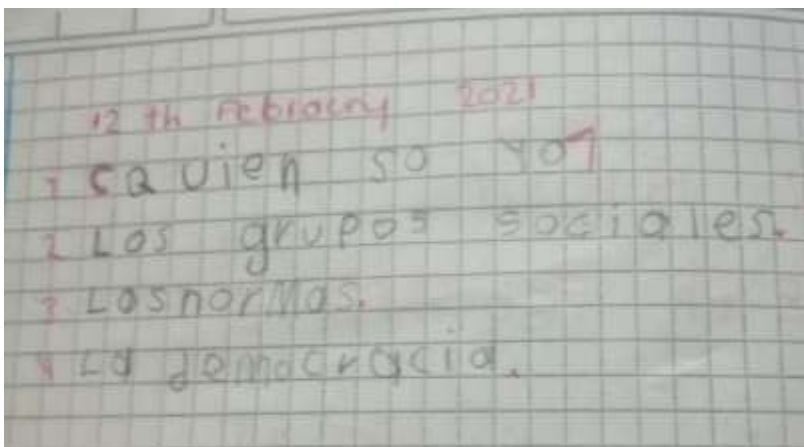 12 th Febraury 2021
1 ¿Quien so yo?
2 Los grupos sociales.
3 Lasnormas.
4 La democracia.